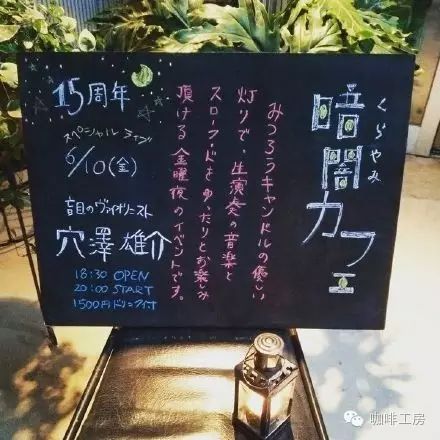 くらやみ
暗闇カフェ
みつろうキャンドルの優しい
灯りで、生演奏の音楽と
スローフードをゆったりとお楽しみ
頂ける金曜夜のイベントです。
15周年
スペシャルライブ
6/10(金)
盲目のヴァイオリニスト
穴澤雄介
18:30 OPEN
20:00 START
1500円ドリンク付
咖啡工房